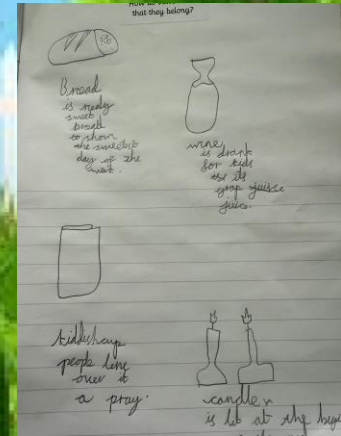 that they belong?
Bread
is realy
sweet
bread
to show
the sweetest
day of the
week.
wine
is drank
for kids
its
grap juisce
juice.
kiddish cup
people
over it
a pray.
candles
is lit at the